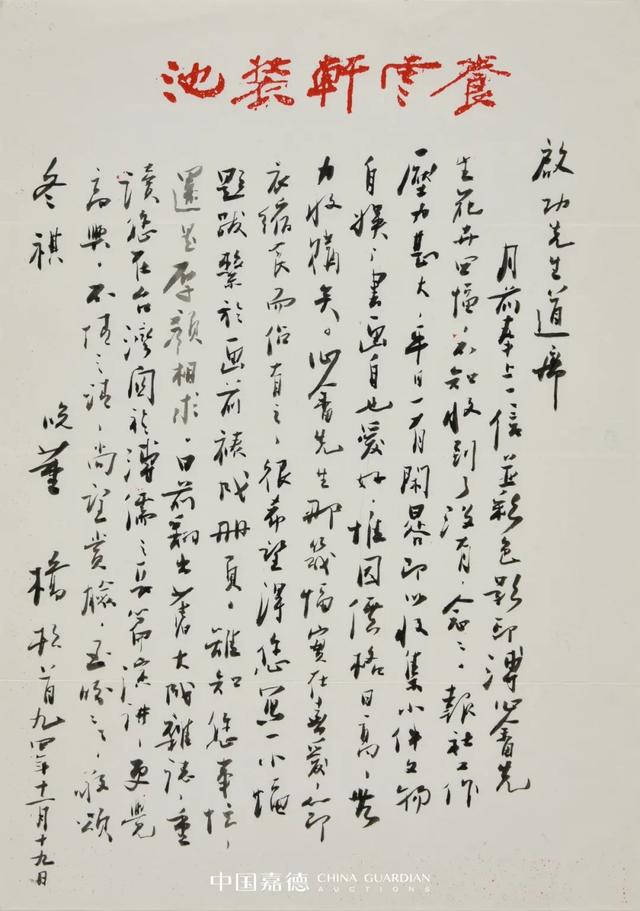 養雲軒裝池
啟功先生道席
月前奉上一信並彩色影印溥心畬先
生花卉四幅，不知收到了沒有，念念。報社工作
壓力甚大，平日一有閑暇即以收集小件文物
自娛，書畫自也愛好，惟因價格日高，無
力收購矣。心畬先生那幾幅實在喜愛，節
衣縮食而有之，很希望得您寫一小幅
題跋繫於畫前裱成冊頁，雖知您事忙，
還是厚顏相求，日前翻出舊大成雜誌，重
讀您在台灣關於溥儒之長篇演講，更覺
高興，不情之請，尚望賞檢，至盼之，敬頌
冬祺
晚董橋頓首九四年十一月十九日
中国嘉德 CHINA GUARDIAN
AUCTIONS